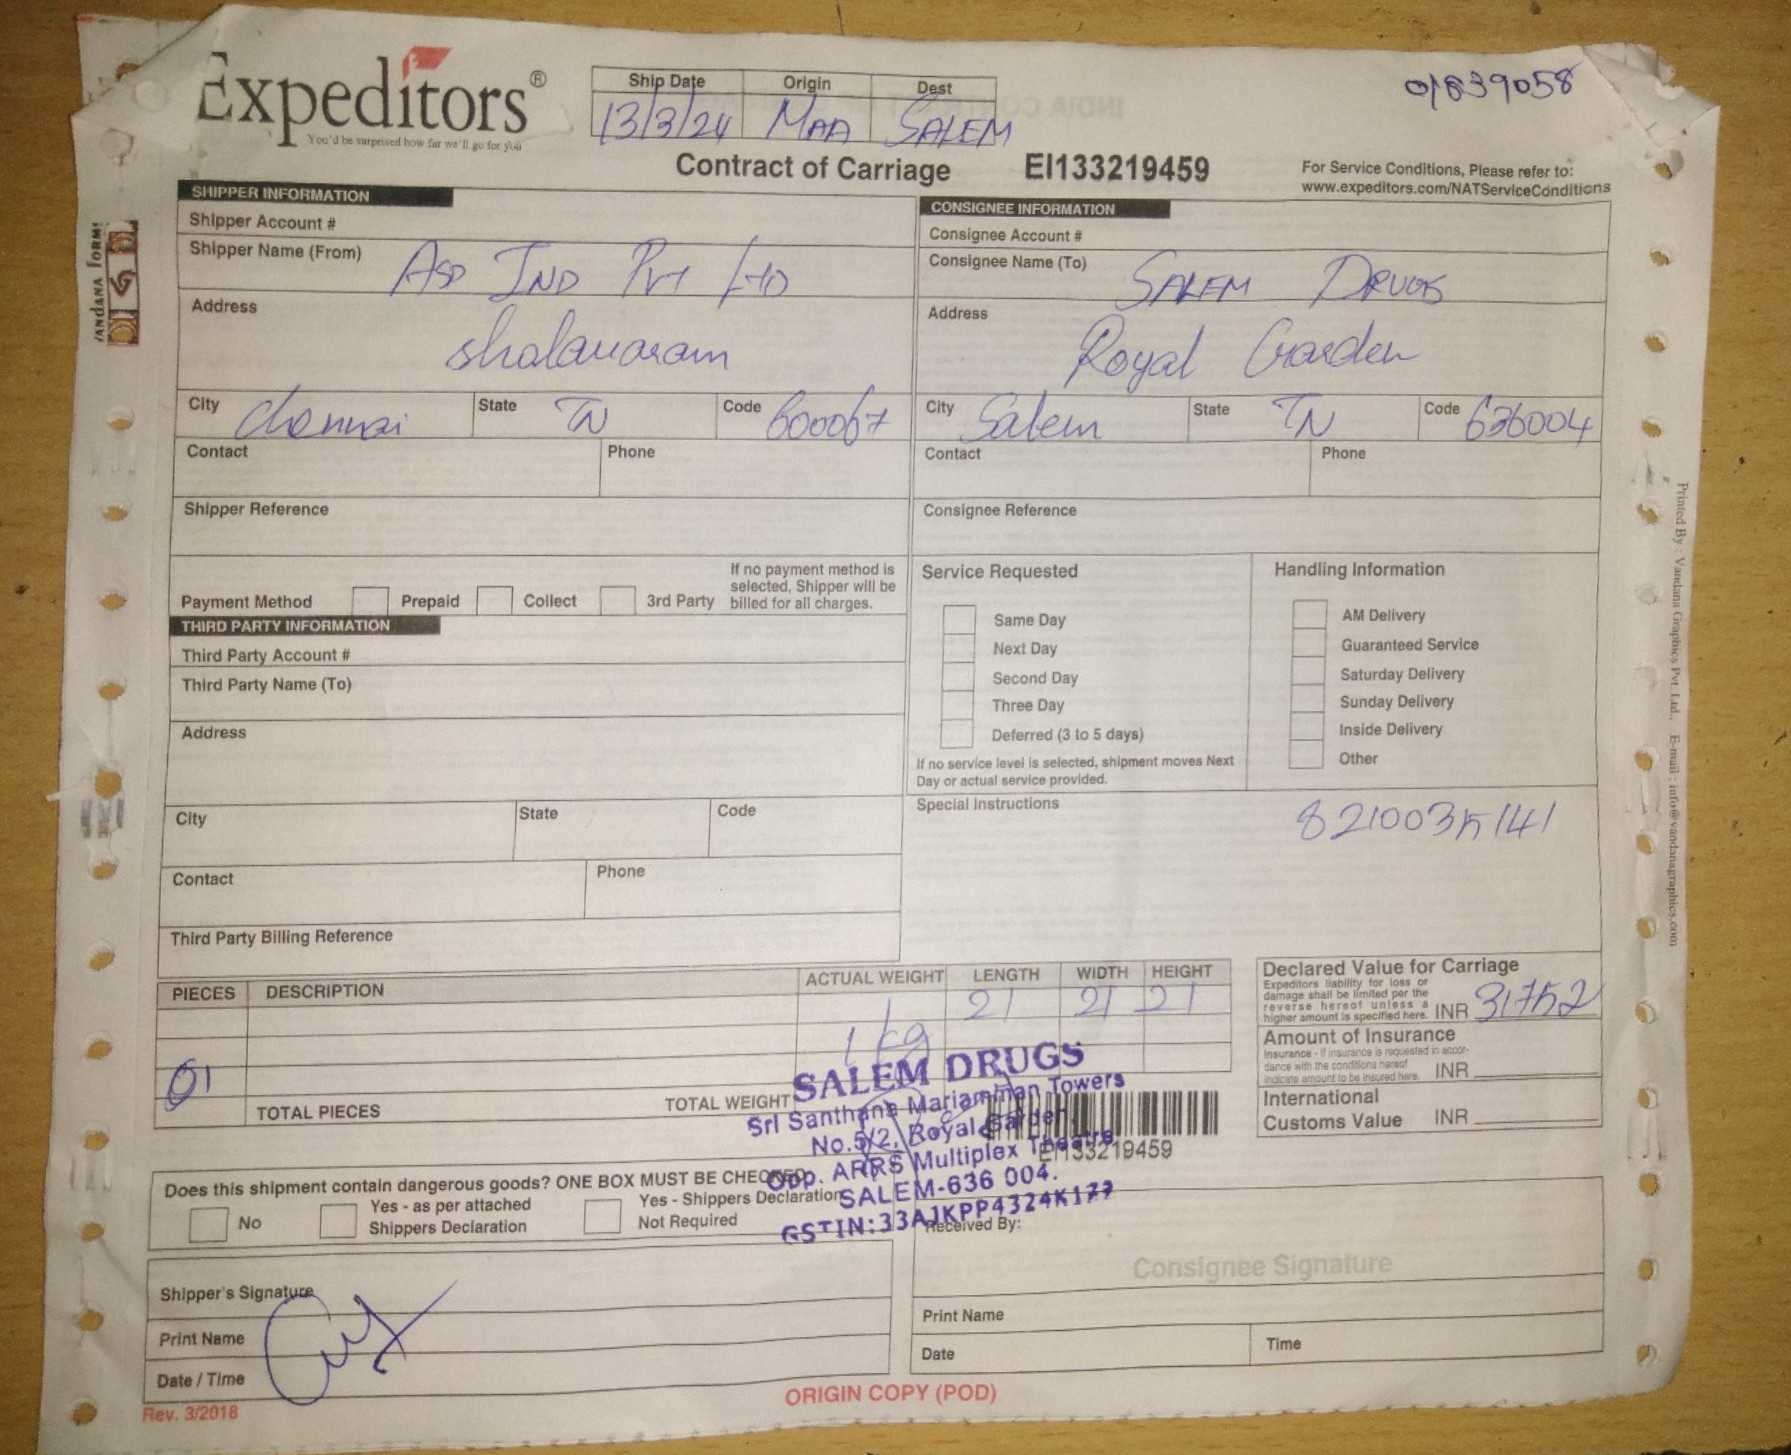 Expeditors®
You'd be surprised how far we'll go for you
Ship Date Origin Dest
13/3/24 MAA SALEM
01839058
Contract of Carriage EI133219459
For Service Conditions, Please refer to:
www.expeditors.com/NATServiceConditions
SHIPPER INFORMATION
Shipper Account #
Shipper Name (From) ASP IND PVT LTD
Address
sholavaram
City Chennai State TN Code 600067
Contact Phone
Shipper Reference
CONSIGNEE INFORMATION
Consignee Account #
Consignee Name (To) SALEM DRUGS
Address
Royal Garden
City Salem State TN Code 636004
Contact Phone
Consignee Reference
Payment Method Prepaid Collect 3rd Party
If no payment method is
selected, Shipper will be
billed for all charges.
THIRD PARTY INFORMATION
Third Party Account #
Third Party Name (To)
Address
City State Code
Contact Phone
Third Party Billing Reference
Service Requested
Same Day
Next Day
Second Day
Three Day
Deferred (3 to 5 days)
If no service level is selected, shipment moves Next
Day or actual service provided.
Handling Information
AM Delivery
Guaranteed Service
Saturday Delivery
Sunday Delivery
Inside Delivery
Other
Special Instructions
8210035141
PIECES DESCRIPTION ACTUAL WEIGHT LENGTH WIDTH HEIGHT
21 21 21
1 kg
01
TOTAL PIECES TOTAL WEIGHT
Declared Value for Carriage
Expeditors liability for loss or
damage shall be limited per the
reverse hereof unless a
higher amount is specified here. INR 31752
Amount of Insurance
Insurance - If insurance is requested in accor-
dance with the conditions hereof
indicate amount to be insured here. INR
International
Customs Value INR
SALEM DRUGS
Sri Santhana Mariamman Towers
No.5/2, Royal Garden
Opp. ARRS Multiplex Theatre
SALEM-636 004.
GSTIN:33AJKPP4324K1
EI133219459
Does this shipment contain dangerous goods? ONE BOX MUST BE CHECKED
No
Yes - as per attached
Shippers Declaration
Yes - Shippers Declaration
Not Required
Shipper's Signature
Print Name
Date / Time
Received By:
Consignee Signature
Print Name
Date Time
Rev. 3/2018
ORIGIN COPY (POD)
VANDANA FORMS
Printed By : Vandana Graphics Pvt. Ltd., E-mail : info@vandanagraphics.com